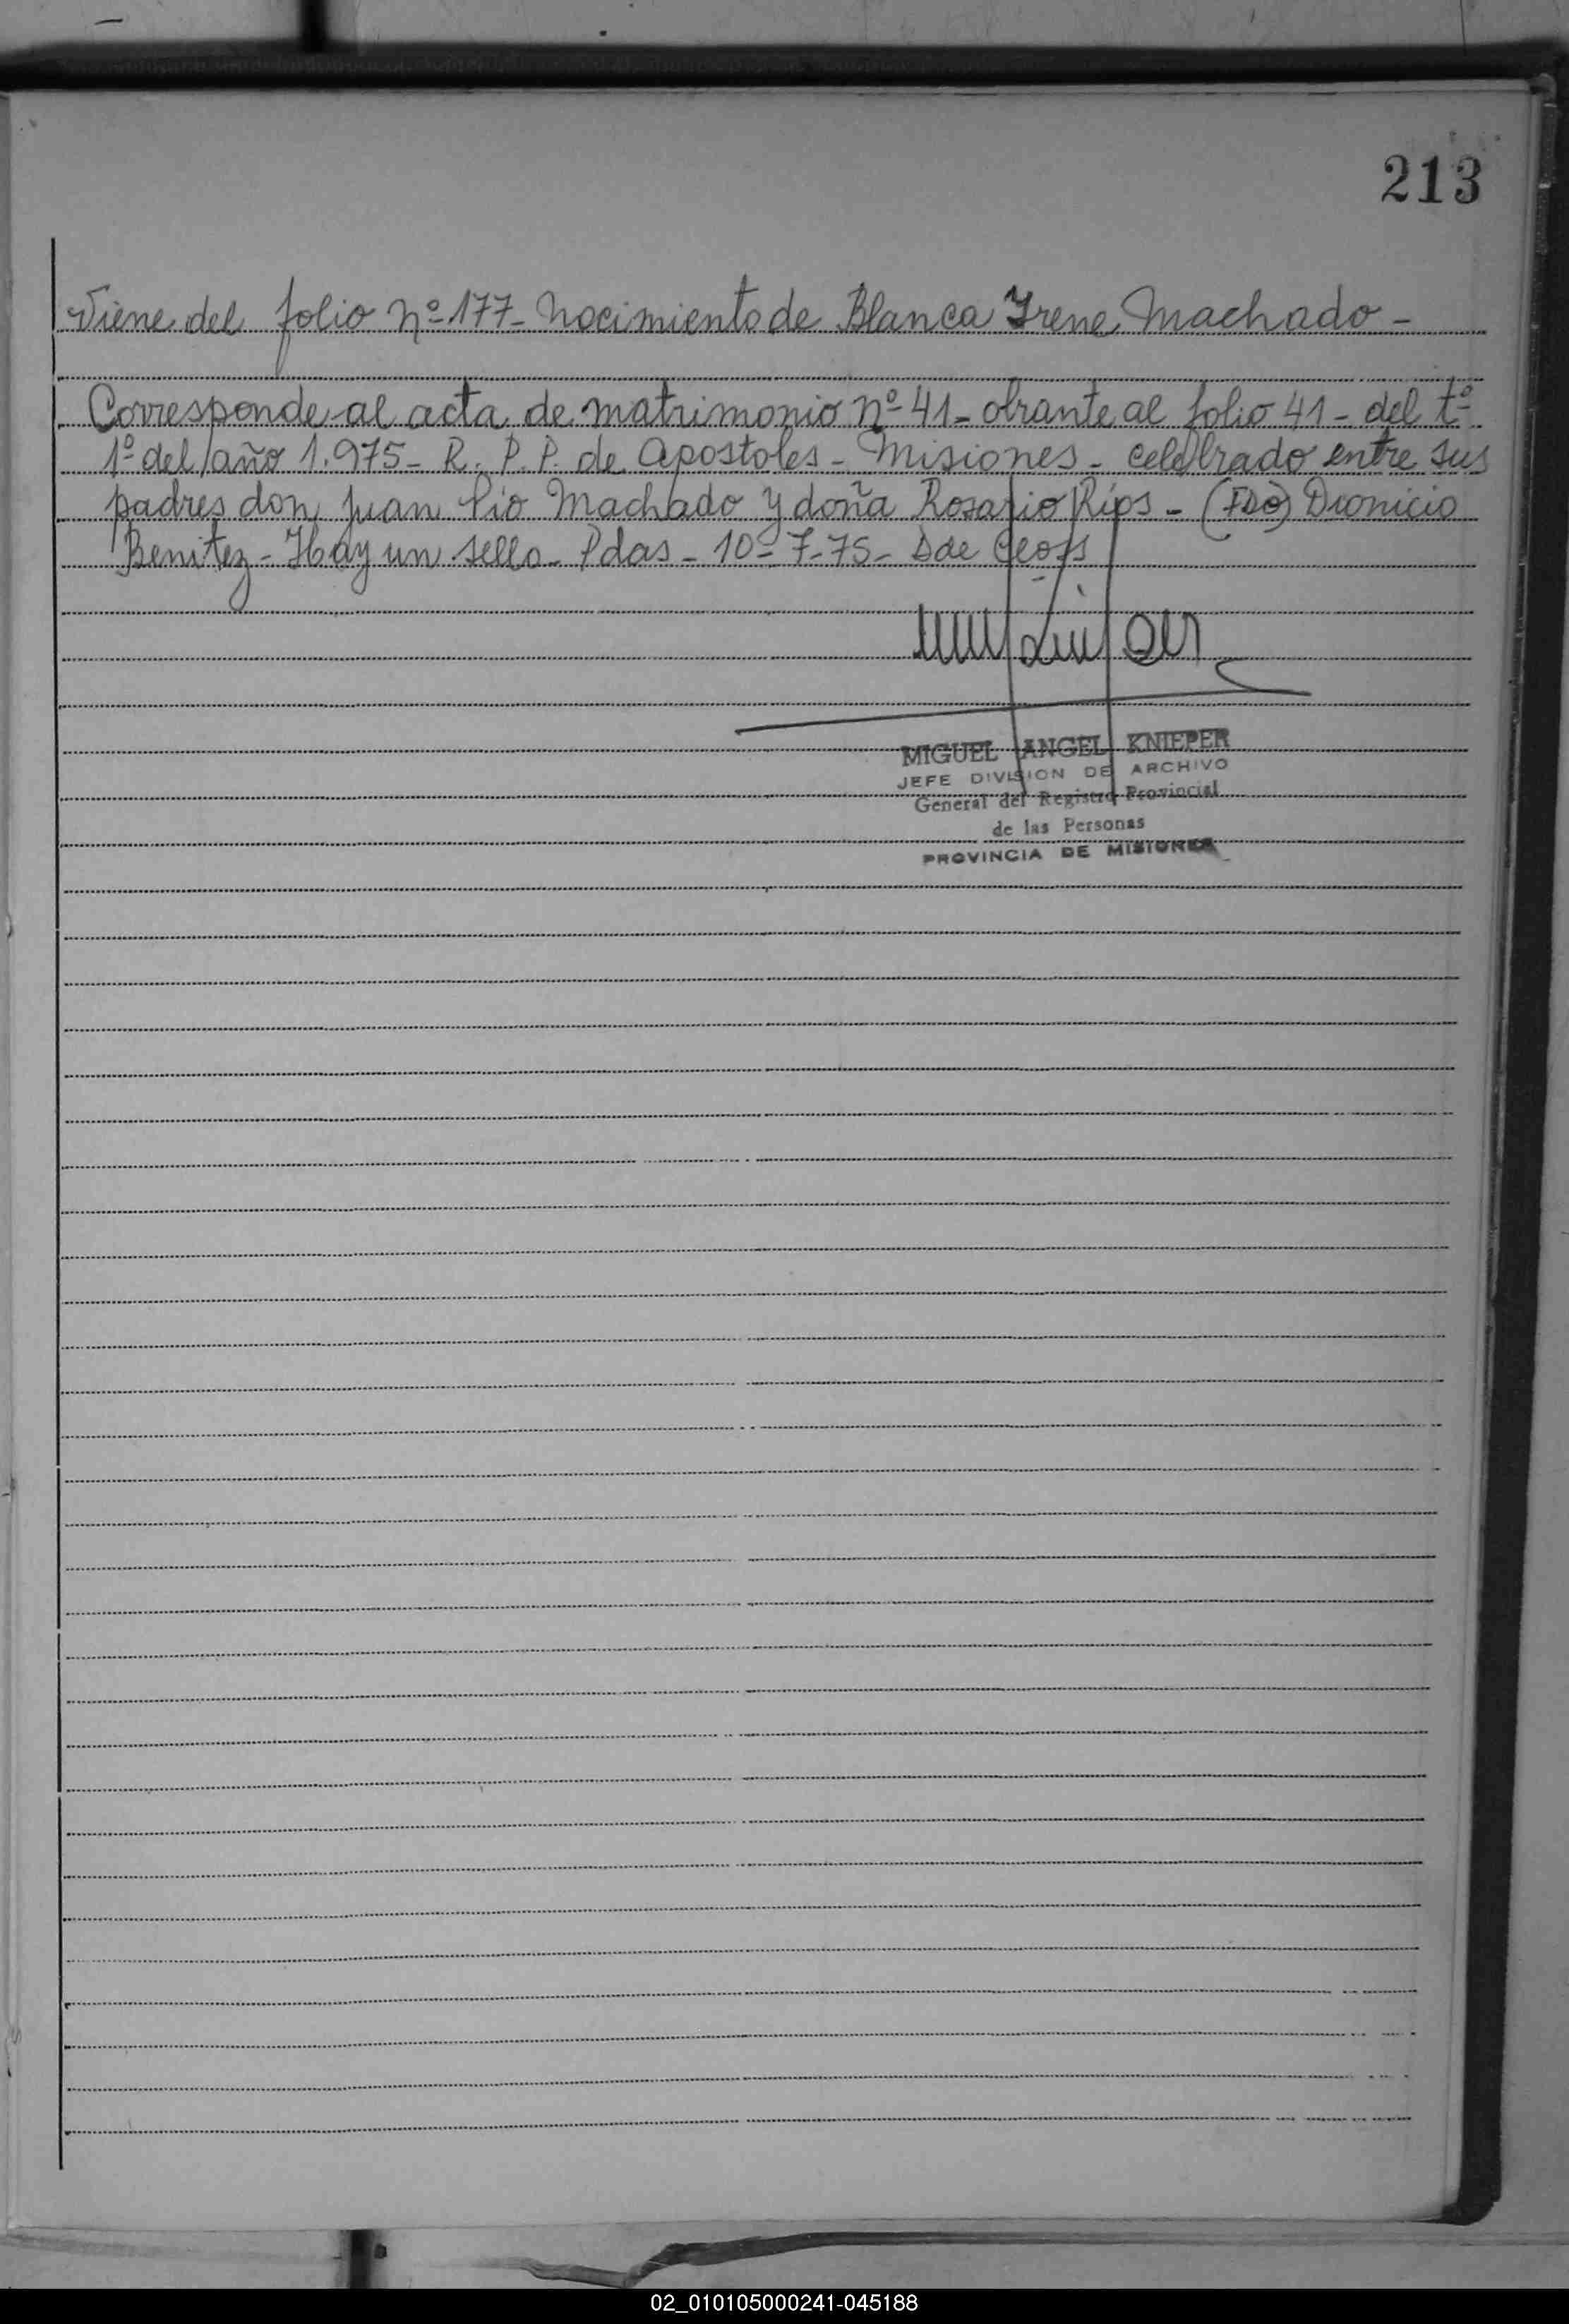 213
Viene del folio nº 177- Nacimiento de Blanca Irene Machado -
Corresponde al acta de matrimonio nº 41- obrante al folio 41- del tº
1º del año 1.975- R. P. P. de Apostoles - Misiones - celebrado entre sus
padres don Juan Pío Machado y doña Rosario Ríos - (FDO) Dionicio
Benitez - Hay un sello - Pdas - 10-7-75-
MIGUEL ANGEL KNIEPER
JEFE DIVISION DE ARCHIVO
General del Registro Provincial
de las Personas
PROVINCIA DE MISIONES
02_010105000241-045188